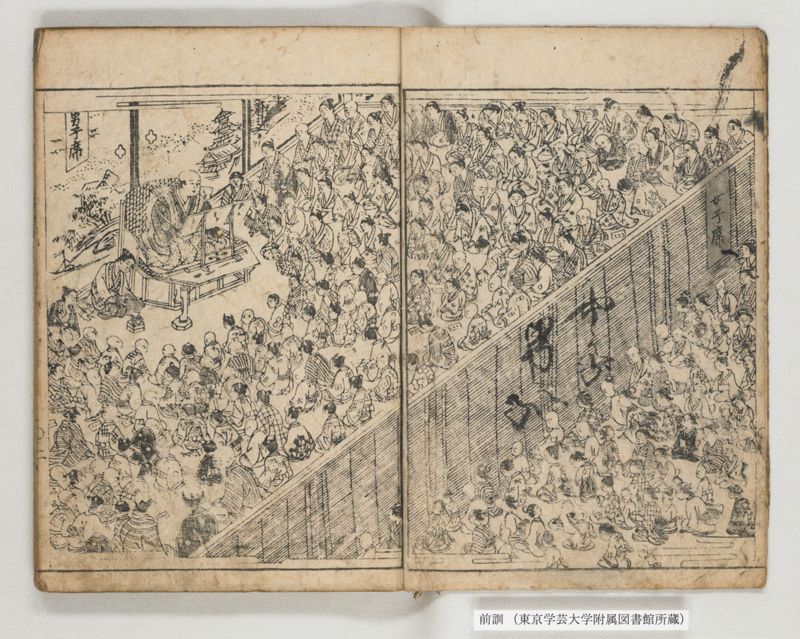 女子席
男子席
前訓 (東京学芸大学附属図書館所蔵)